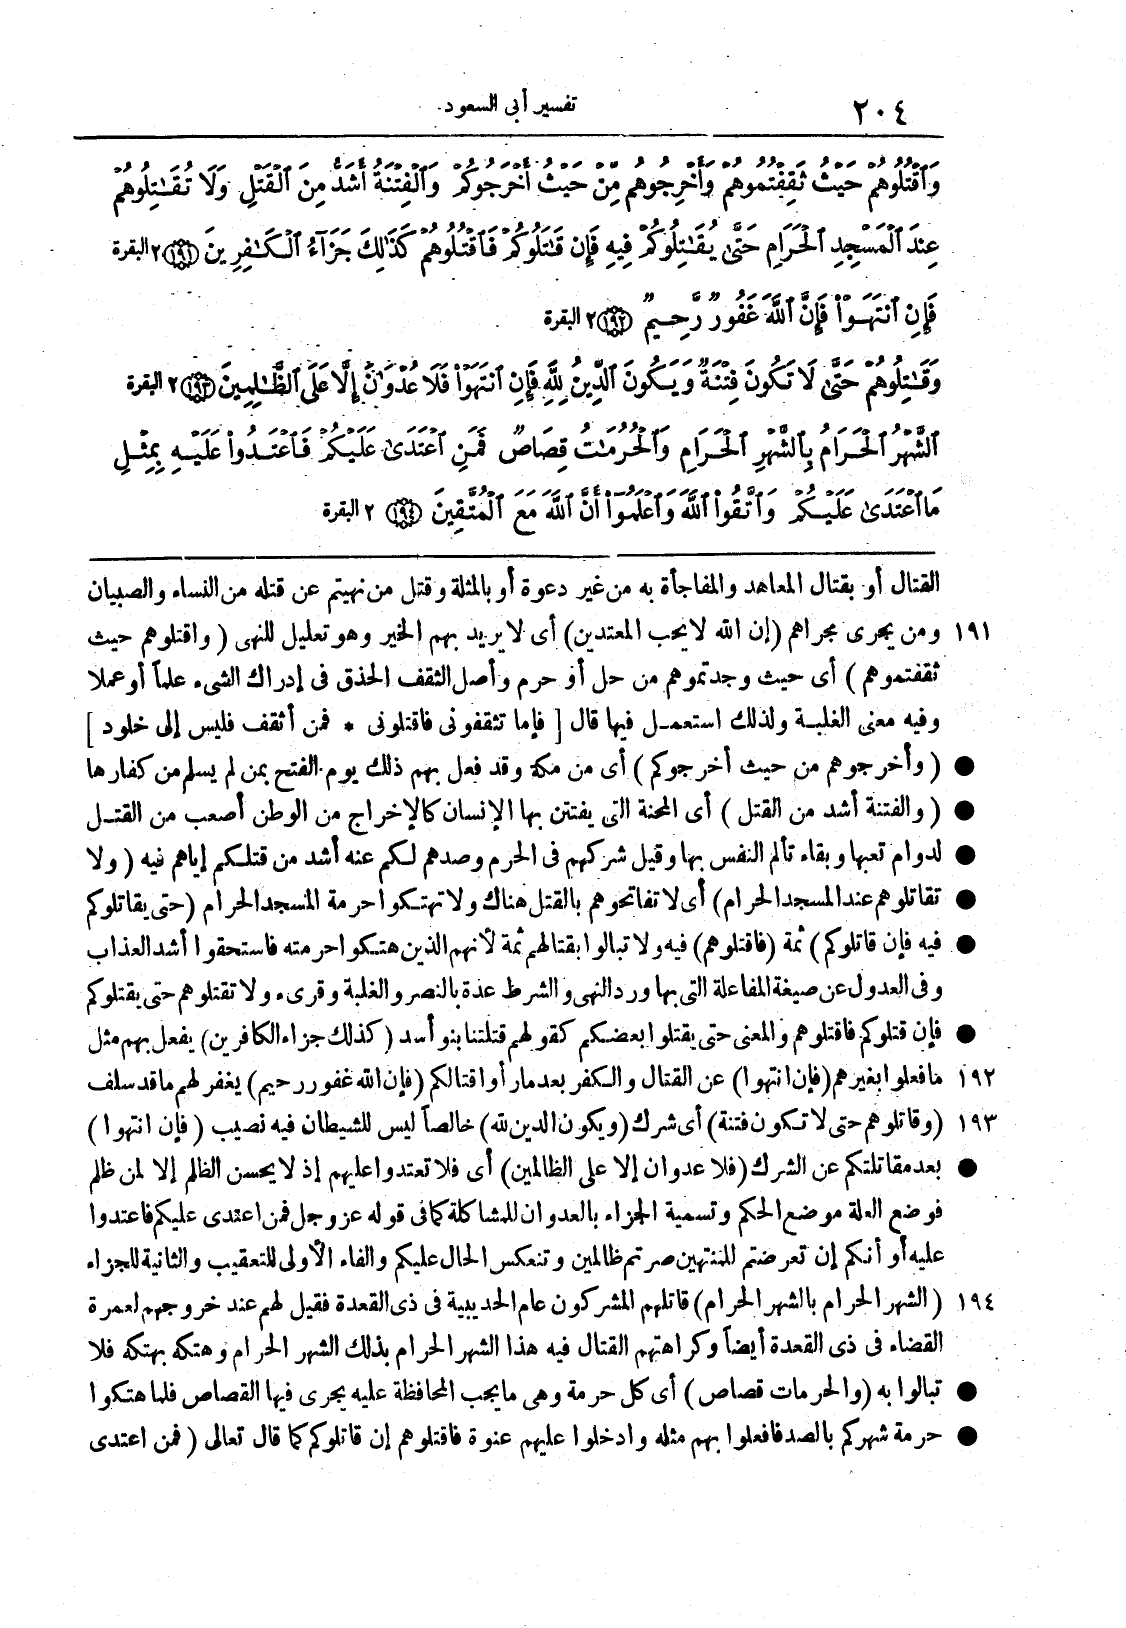 ٢٠٤ تفسير أبى السعود
وَٱقْتُلُوهُمْ حَيْثُ ثَقِفْتُمُوهُمْ وَأَخْرِجُوهُم مِّنْ حَيْثُ أَخْرَجُوكُمْ وَٱلْفِتْنَةُ أَشَدُّ مِنَ ٱلْقَتْلِ وَلَا تُقَٰتِلُوهُمْ
عِندَ ٱلْمَسْجِدِ ٱلْحَرَامِ حَتَّىٰ يُقَٰتِلُوكُمْ فِيهِ فَإِن قَٰتَلُوكُمْ فَٱقْتُلُوهُمْ كَذَٰلِكَ جَزَآءُ ٱلْكَٰفِرِينَ ﴿١٩١﴾ ٢ البقرة
فَإِنِ ٱنتَهَوْا۟ فَإِنَّ ٱللَّهَ غَفُورٌ رَّحِيمٌ ﴿١٩٢﴾ ٢ البقرة
وَقَٰتِلُوهُمْ حَتَّىٰ لَا تَكُونَ فِتْنَةٌ وَيَكُونَ ٱلدِّينُ لِلَّهِ فَإِنِ ٱنتَهَوْا۟ فَلَا عُدْوَٰنَ إِلَّا عَلَى ٱلظَّٰلِمِينَ ﴿١٩٣﴾ ٢ البقرة
ٱلشَّهْرُ ٱلْحَرَامُ بِٱلشَّهْرِ ٱلْحَرَامِ وَٱلْحُرُمَٰتُ قِصَاصٌ فَمَنِ ٱعْتَدَىٰ عَلَيْكُمْ فَٱعْتَدُوا۟ عَلَيْهِ بِمِثْلِ
مَا ٱعْتَدَىٰ عَلَيْكُمْ وَٱتَّقُوا۟ ٱللَّهَ وَٱعْلَمُوٓا۟ أَنَّ ٱللَّهَ مَعَ ٱلْمُتَّقِينَ ﴿١٩٤﴾ ٢ البقرة
القتال أو بقتال المعاهد والمفاجأة به من غير دعوة أو بالمثلة وقتل من نهيتم عن قتله من النساء والصبيان
١٩١ ومن يجرى مجراهم (إن الله لا يحب المعتدين) أى لا يريد بهم الخير وهو تعليل للنهى (واقتلوهم حيث
ثقفتموهم) أى حيث وجدتموهم من حل أو حرم وأصل الثقف الحذق فى إدراك الشىء علماً أو عملا
وفيه معنى الغلبة ولذلك استعمل فيها قال [فإما تثقفونى فاقتلونى * فمن أثقف فليس إلى خلود]
● (وأخرجوهم من حيث أخرجوكم) أى من مكة وقد فعل بهم ذلك يوم الفتح بمن لم يسلم من كفارها
● (والفتنة أشد من القتل) أى المحنة التى يفتتن بها الإنسان كالإخراج من الوطن أصعب من القتل
● لدوام تعبها وبقاء تألم النفس بها وقيل شركهم فى الحرم وصدهم لكم عنه أشد من قتلكم إياهم فيه (ولا
● تقاتلوهم عند المسجد الحرام) أى لا تفاتحوهم بالقتل هناك ولا تهتكوا حرمة المسجد الحرام (حتى يقاتلوكم
● فيه فإن قاتلوكم) ثمة (فاقتلوهم) فيه ولا تبالوا بقتالهم ثمة لأنهم الذين هتكوا حرمته فاستحقوا أشد العذاب
وفى العدول عن صيغة المفاعلة التى بها ورد النهى والشرط عدة بالنصر والغلبة وقرىء ولا تقتلوهم حتى يقتلوكم
● فإن قتلوكم فاقتلوهم والمعنى حتى يقتلوا بعضكم كقولهم قتلتنا بنو أسد (كذلك جزاء الكافرين) يفعل بهم مثل
١٩٢ ما فعلوا بغيرهم (فإن انتهوا) عن القتال والكفر بعد ما رأوا قتالكم (فإن الله غفور رحيم) يغفر لهم ما قد سلف
١٩٣ (وقاتلوهم حتى لا تكون فتنة) أى شرك (ويكون الدين لله) خالصاً ليس للشيطان فيه نصيب (فإن انتهوا)
● بعد مقاتلتكم عن الشرك (فلا عدوان إلا على الظالمين) أى فلا تعتدوا عليهم إذ لا يحسن الظلم إلا لمن ظلم
فوضع العلة موضع الحكم وتسمية الجزاء بالعدوان للمشاكلة كما فى قوله عز وجل فمن اعتدى عليكم فاعتدوا
عليه أو أنكم إن تعرضتم للمنتهين صرتم ظالمين وتنعكس الحال عليكم والفاء الأولى للتعقيب والثانية للجزاء
١٩٤ (الشهر الحرام بالشهر الحرام) قاتلهم المشركون عام الحديبية فى ذى القعدة فقيل لهم عند خروجهم لعمرة
القضاء فى ذى القعدة أيضاً وكراهتهم القتال فيه هذا الشهر الحرام بذلك الشهر الحرام وهتكه بهتكه فلا
● تبالوا به (والحرمات قصاص) أى كل حرمة وهى ما يجب المحافظة عليه يجرى فيها القصاص فلما هتكوا
● حرمة شهركم بالصد فافعلوا بهم مثله وادخلوا عليهم عنوة فاقتلوهم إن قاتلوكم كما قال تعالى (فمن اعتدى